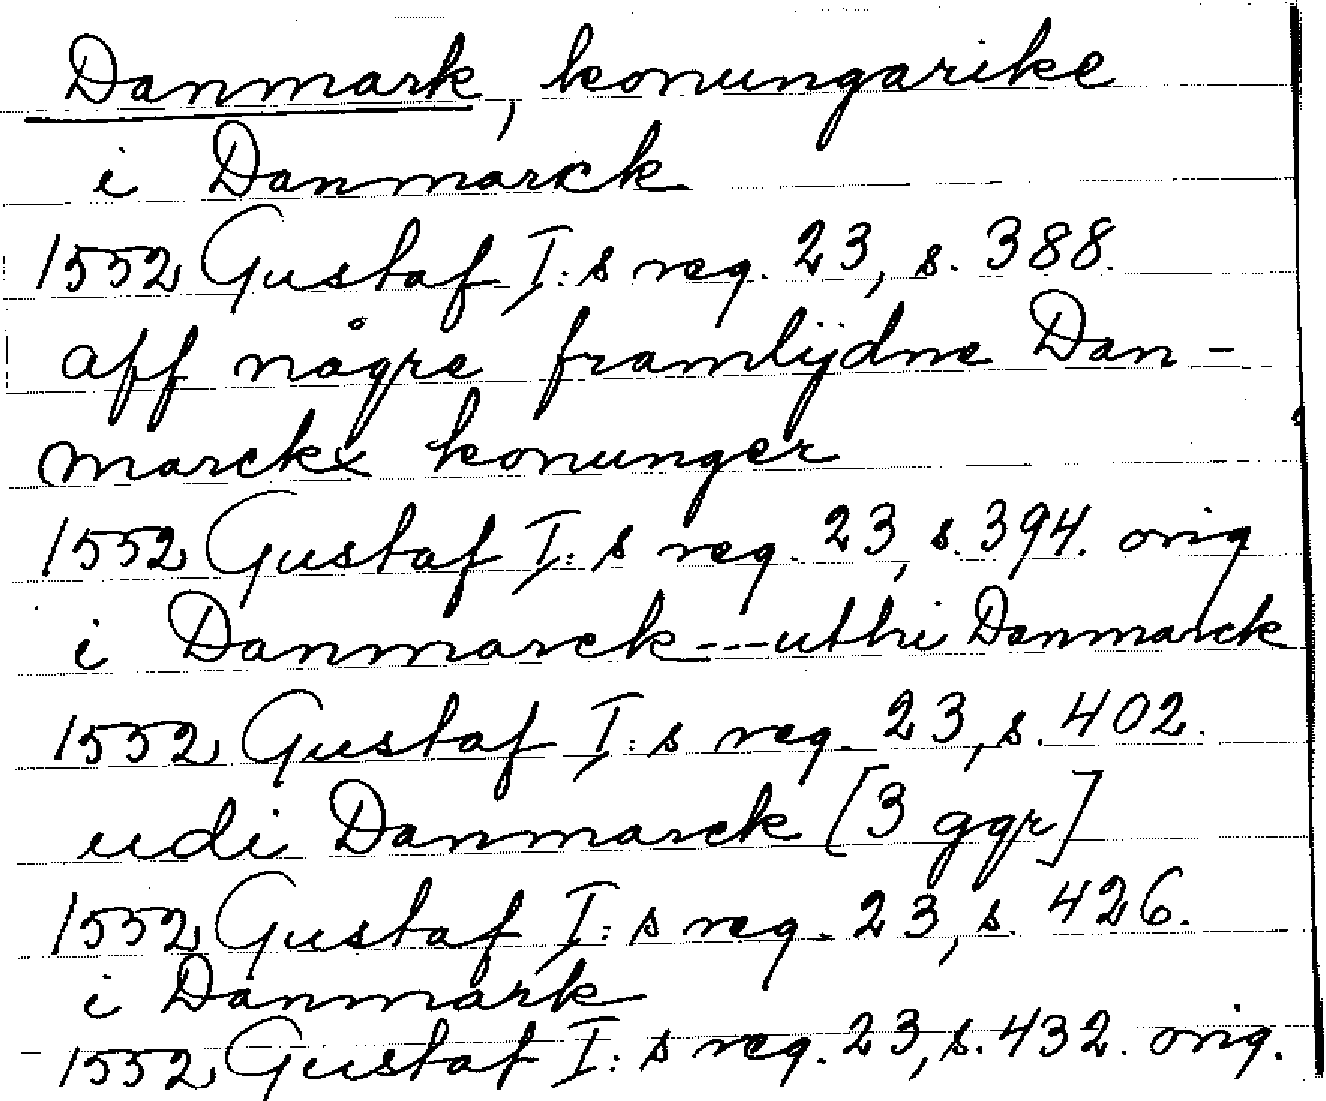 Danmark, konungarike
i Danmarck
1552 Gustaf I:s reg. 23, s. 388.
aff någre framlijdne Dan-
marckx konunger
1552 Gustaf I:s reg. 23, s. 394. orig
i Danmarck---uthi Danmarck
1552 Gustaf I:s reg. 23, s. 402.
udi Danmarck [3 ggr]
1552 Gustaf I:s reg. 23, s. 426.
i Danmark
1552 Gustaf I:s reg. 23, s. 432. orig.